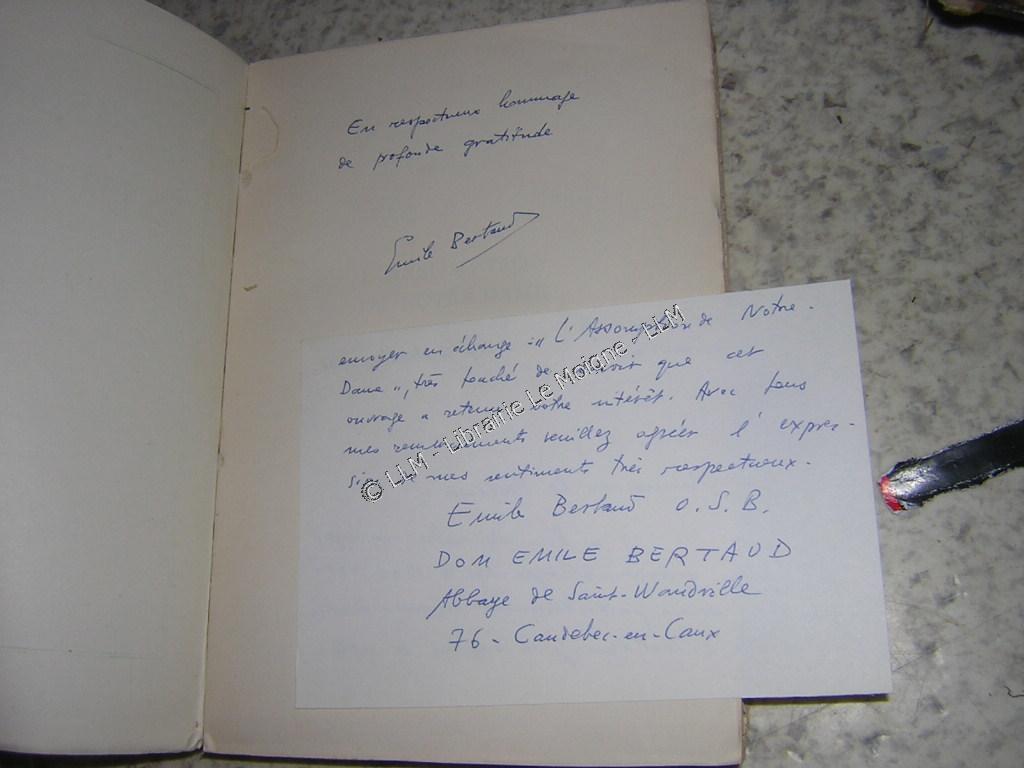 En respectueux hommage
de profonde gratitude
Emile Bertaud
envoyer en échange : " L'Assomption de Notre-
Dame ", très touché de voir que cet
ouvrage a retenu votre intérêt. Avec tous
mes remerciements veuillez agréer l'expres-
sion mes sentiments très respectueux.
Emile Bertaud O.S.B.
DOM EMILE BERTAUD
Abbaye de Saint-Wandrille
76 - Caudebec-en-Caux
© LLM - Librairie Le Moigne - LLM